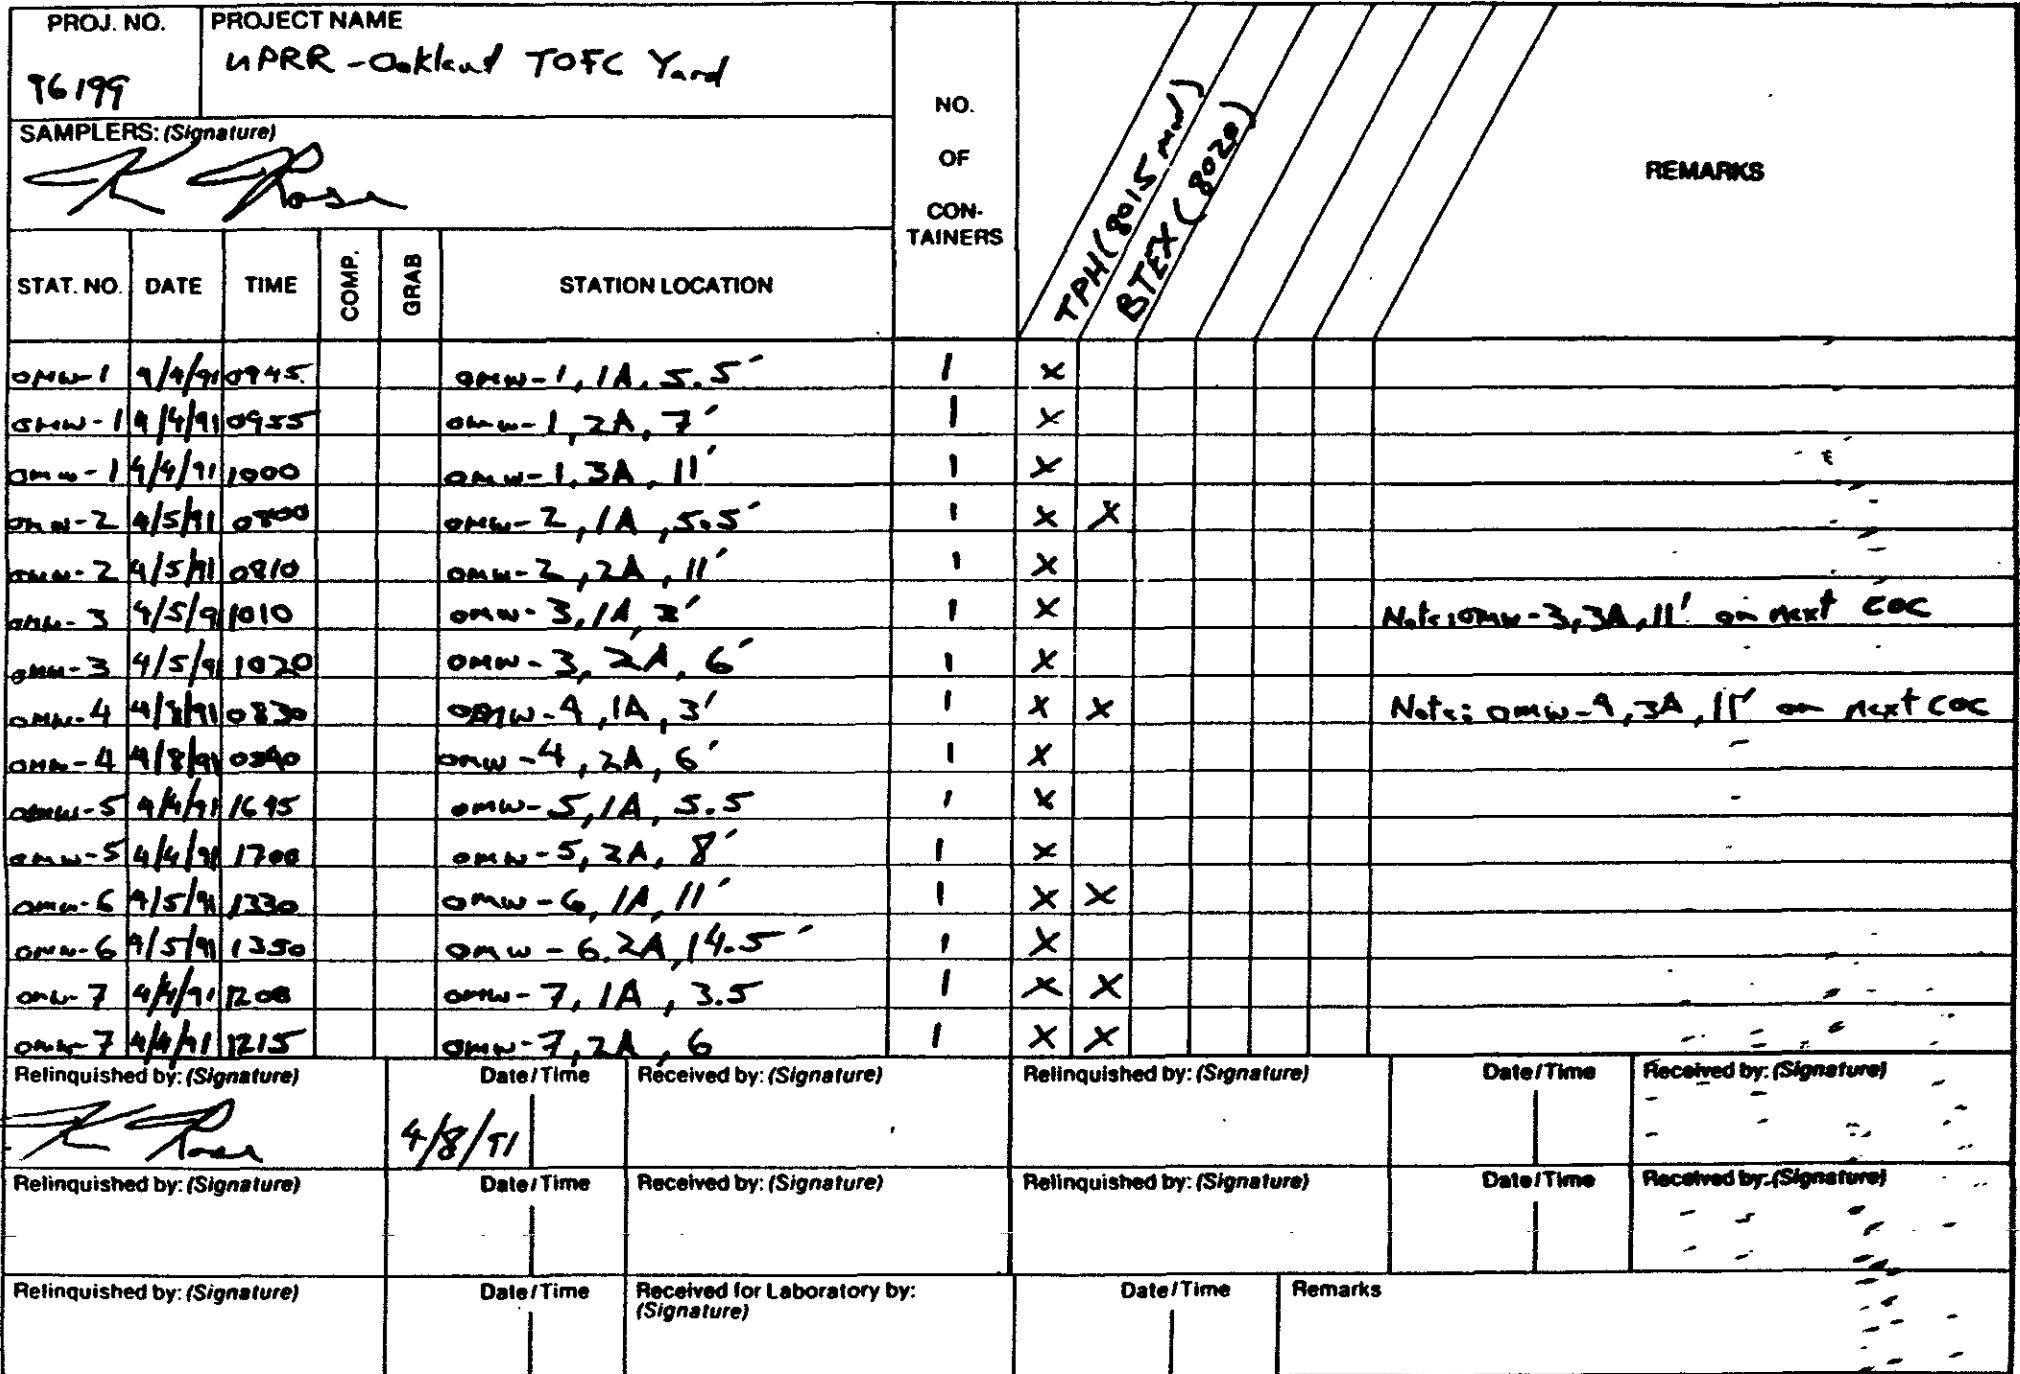 PROJ. NO. PROJECT NAME
96199 UPRR - Oakland TOFC Yard
SAMPLERS: (Signature)
K Rose
NO. OF CON-TAINERS
TPH (8015 mod)
BTEX (8020)
REMARKS
STAT. NO. DATE TIME COMP. GRAB STATION LOCATION
OMW-1 4/4/91 0945 OMW-1, 1A, 5.5' 1 X
OMW-1 4/4/91 0955 OMW-1, 2A, 7' 1 X
OMW-1 4/4/91 1000 OMW-1, 3A, 11' 1 X
OMW-2 4/5/91 0800 OMW-2, 1A, 5.5' 1 X X
OMW-2 4/5/91 0810 OMW-2, 2A, 11' 1 X
OMW-3 4/5/91 1010 OMW-3, 1A, 1 X Note: OMW-3, 3A, 11' on next COC
OMW-3 4/5/91 1020 OMW-3, 2A, 6' 1 X
OMW-4 4/8/91 0830 OMW-4, 1A, 3' 1 X X Note: OMW-4, 3A, 11' on next COC
OMW-4 4/8/91 0840 OMW-4, 2A, 6' 1 X
OMW-5 4/4/91 1645 OMW-5, 1A, 5.5 1 X
OMW-5 4/4/91 1700 OMW-5, 2A, 8' 1 X
OMW-6 4/5/91 1330 OMW-6, 1A, 11' 1 X X
OMW-6 4/5/91 1350 OMW-6, 2A, 14.5' 1 X
OMW-7 4/4/91 1208 OMW-7, 1A, 3.5 1 X X
OMW-7 4/4/91 1215 OMW-7, 2A, 6 1 X X
Relinquished by: (Signature) Date/Time Received by: (Signature) Relinquished by: (Signature) Date/Time Received by: (Signature)
K Rose 4/8/91
Relinquished by: (Signature) Date/Time Received by: (Signature) Relinquished by: (Signature) Date/Time Received by: (Signature)
Relinquished by: (Signature) Date/Time Received for Laboratory by: (Signature) Date/Time Remarks